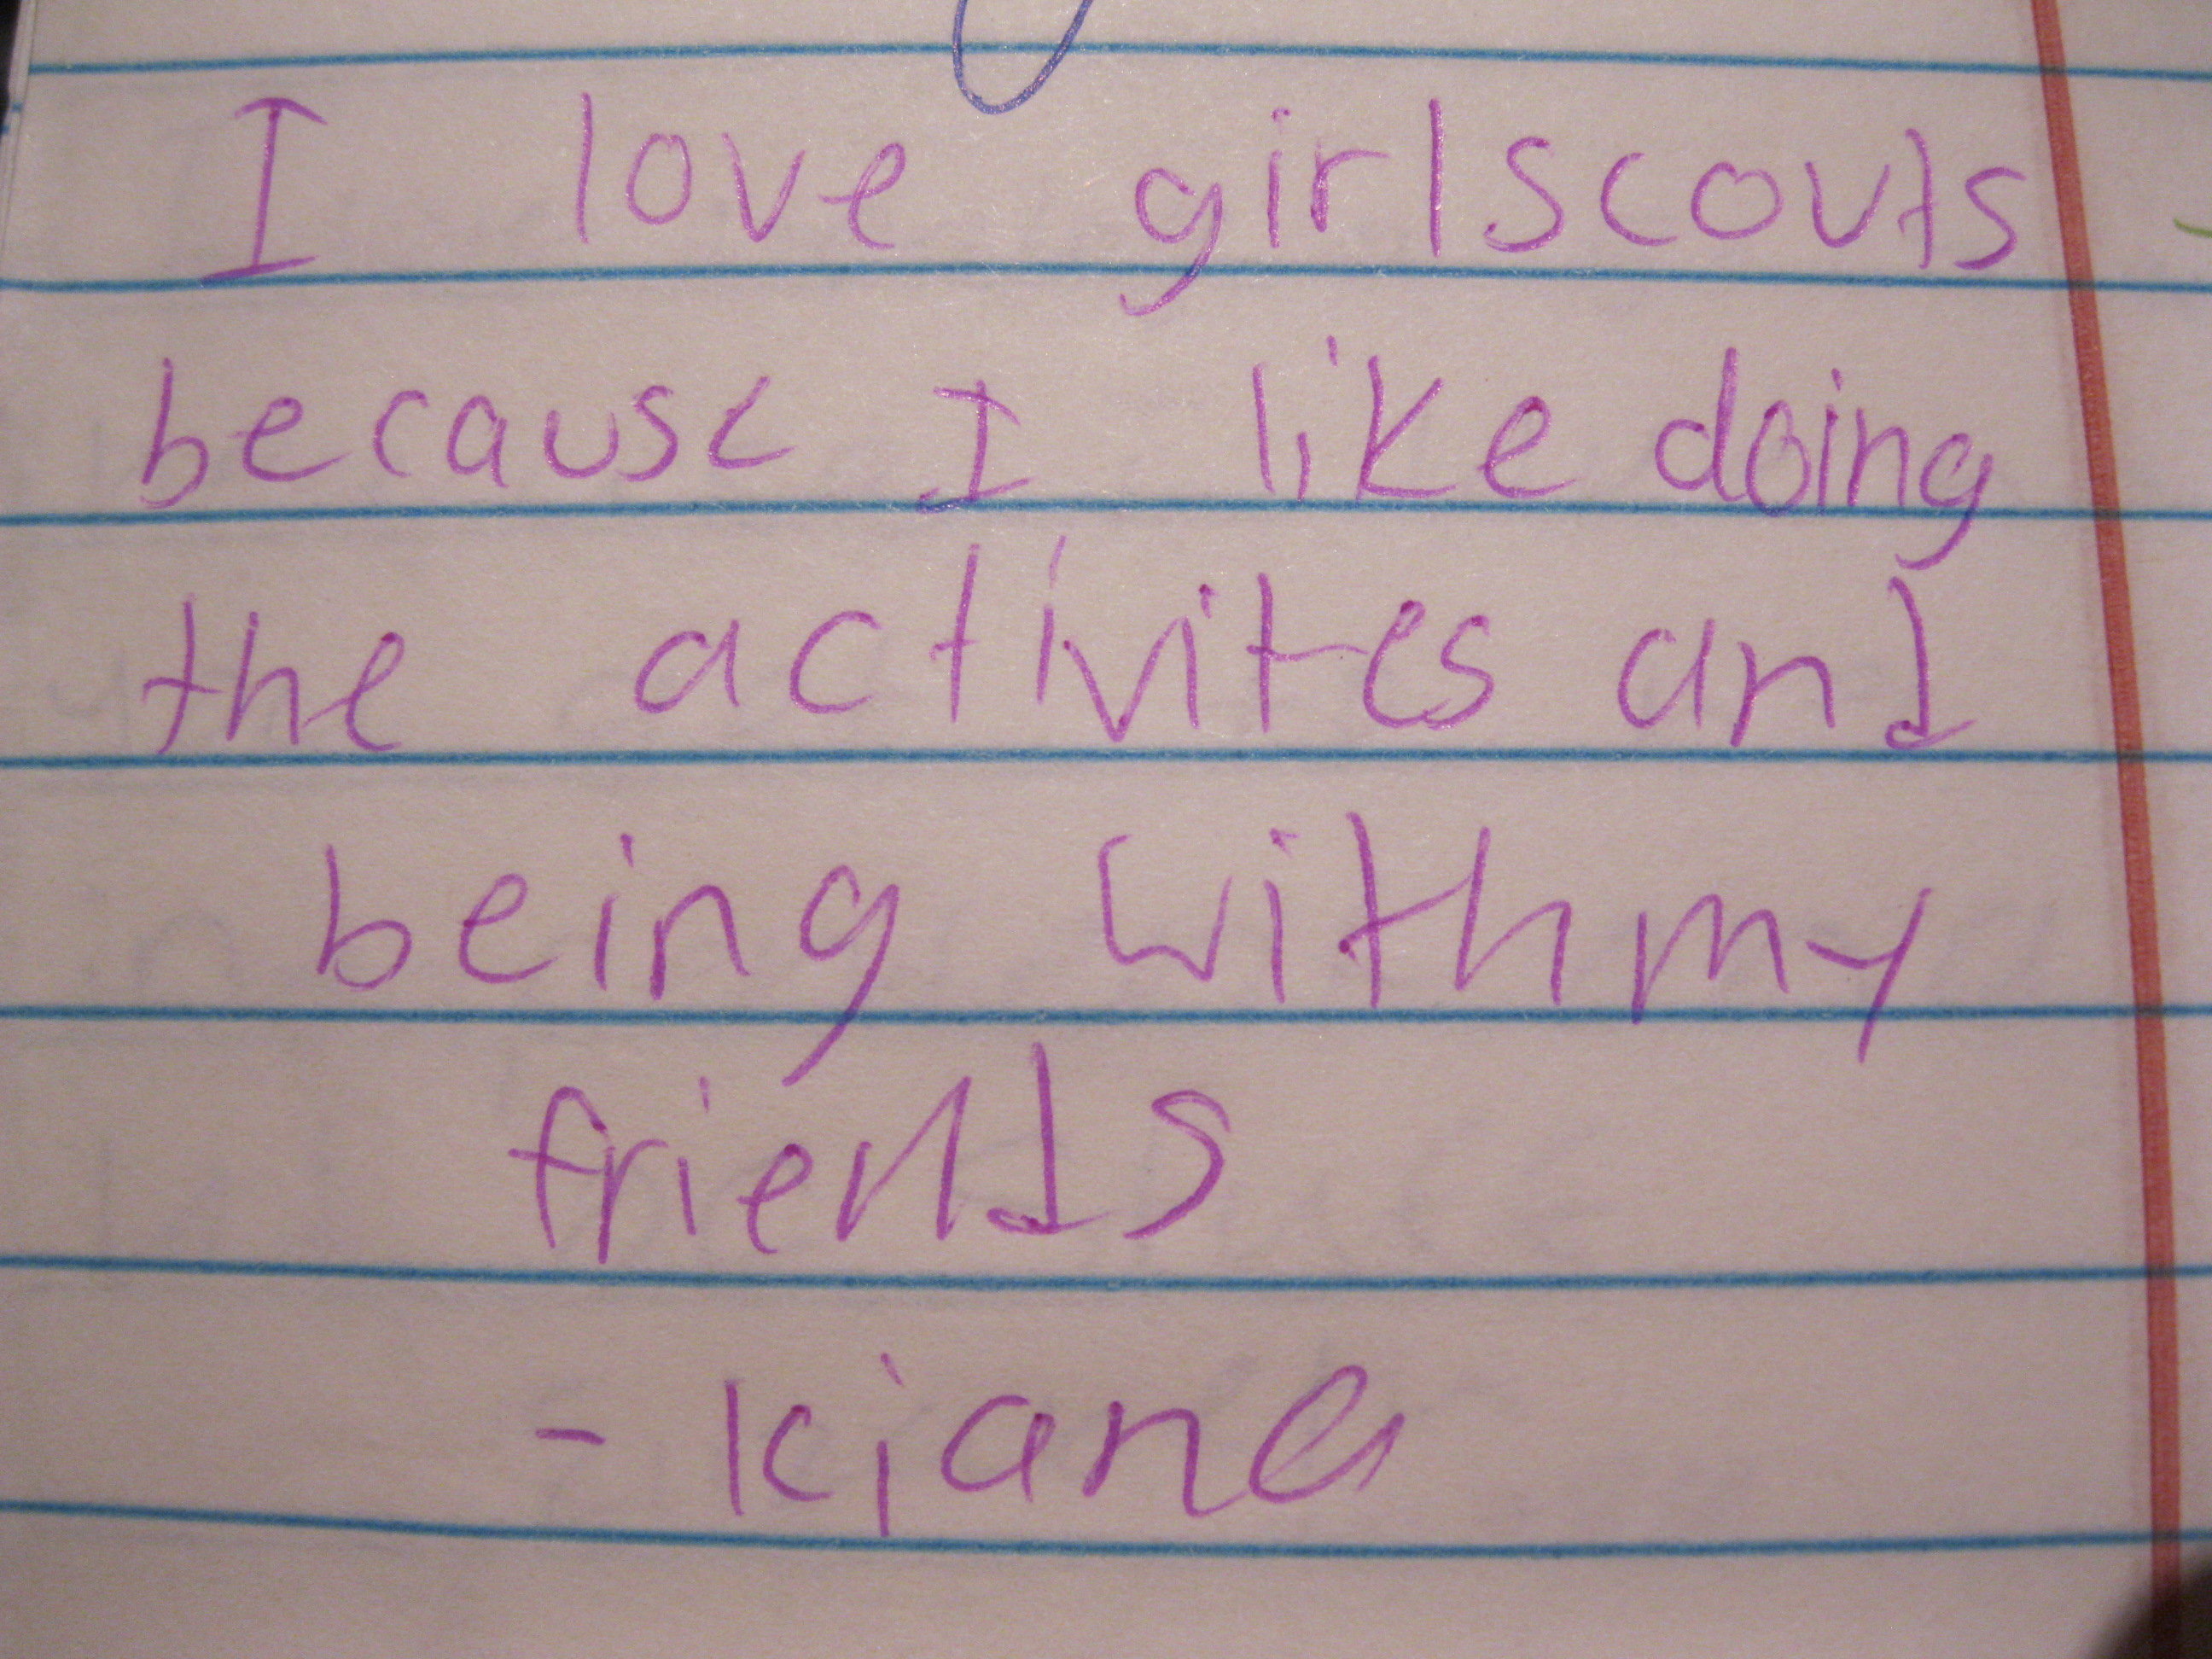 I love girlscouts
because I like doing
the activites and
being with my
friends
- kiana